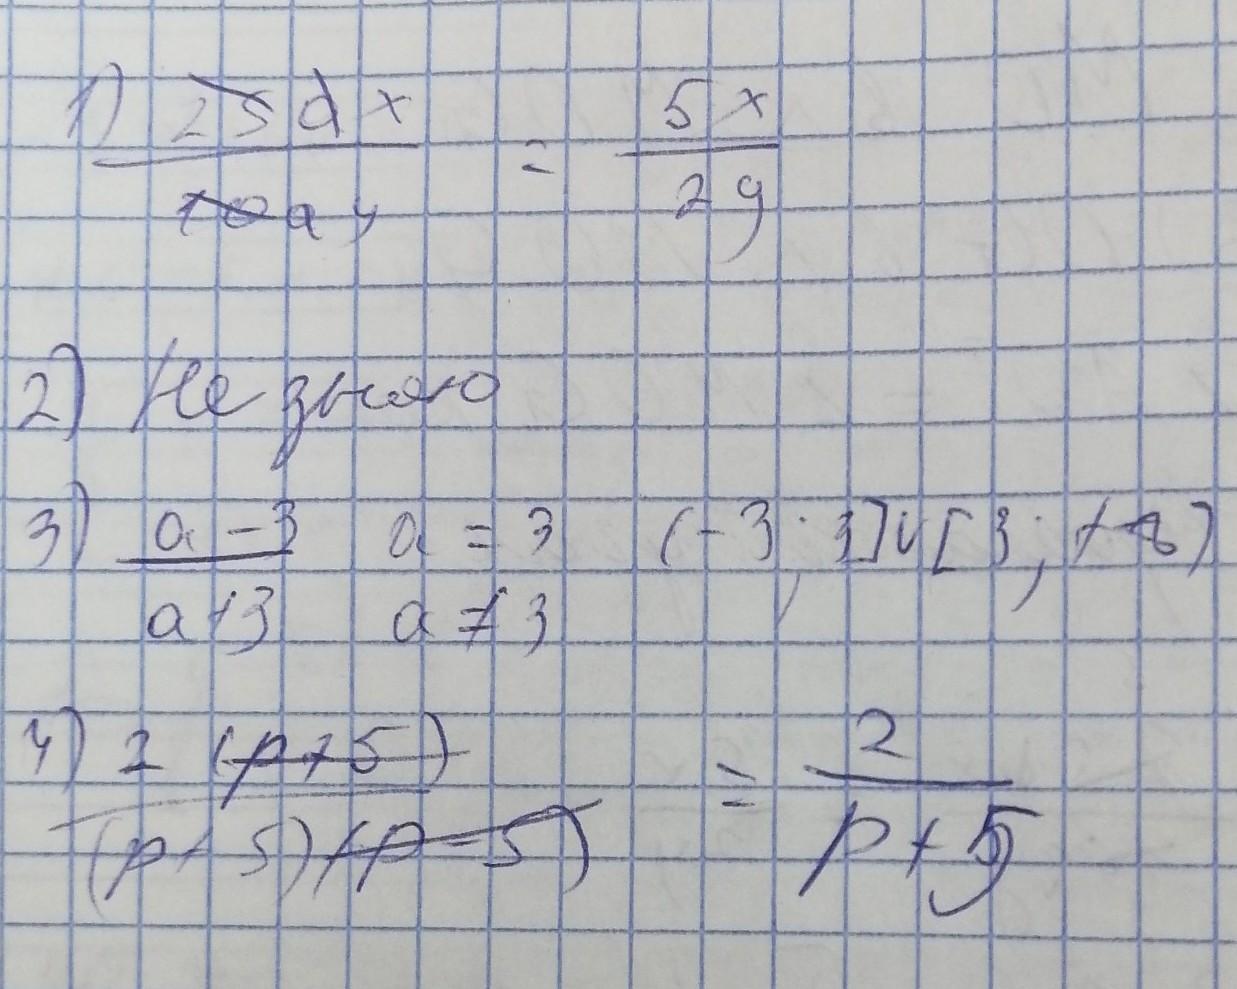 1) 25dx / 10ay = 5x / 2y
2) Не знаю
3) a-3 / a+3 a = 3 a ≠ 3 (-3; 3]∪[3; +∞)
4) 2 (p+5) / (p+5)(p-5) = 2 / p+5